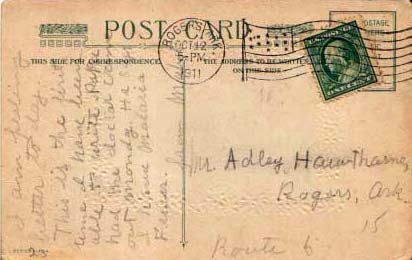 POST CARD
THIS SIDE FOR CORRESPONDENCE
THE ADDRESS TO BE WRITTEN
ON THIS SIDE
ROGERS, ARK.
OCT 12
-PM
1911
POSTAGE
HERE
ONE CENT
I am feeling
better to day.
This is the first
time I have been
able to write. Papa
had the doctor come
out monday. He says
I have Malaria
Fever.
from M
Mr. Adley Hawthorne,
Rogers, Ark.
15
Route 6.